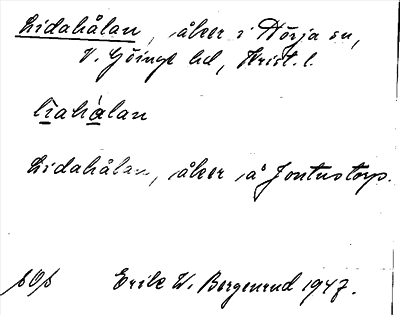 Lidahålan, åker i Nörja sn,
V. Göinge hd, Krist. l.
lìahàlan
Lidahålan, åker å Jontustorp.
sOs Erik W. Bergenrud 1947.